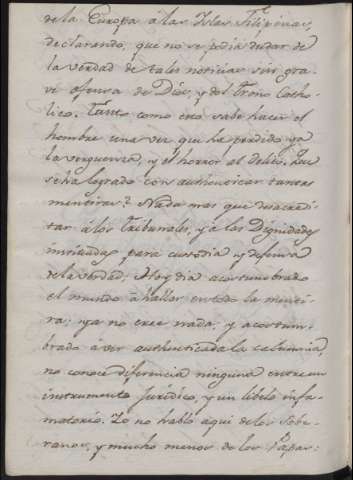 de la Europa à las Islas Filipinas,
declarando, que no se podia dudar de
la verdad de tales noticias sin gra-
ve ofensa de Dios, y del Trono Catho-
lico. Tanto como esto sabe hacer el
hombre una vez que ha perdido ya
la verguenza, y el horror al delito. Que
se ha logrado con authenticar tantas
mentiras? Nada mas que desacredi-
tar à los Tribunales, y a las Dignidades
instituidas para custodia y defensa
de la verdad; Hoy dia acostumbrado
el mundo à hallar en todo la menti-
ra; ya no cree nada; y acostum-
brado à ver authenticada la calumnia,
no conoce diferencia ninguna entre un
instrumento Juridico, y un libelo infa-
matorio. Yo no hablo aqui de los Sobe-
ranos, y mucho menos de los Papas: